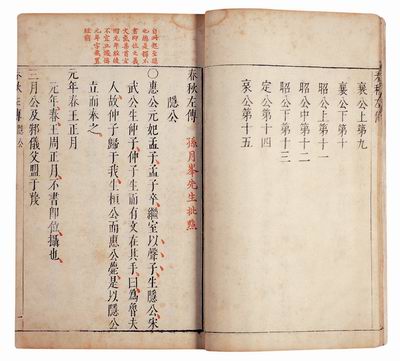 春秋左傳
襄公上第九
襄公下第十
昭公上第十一
昭公中第十二
昭公下第十三
定公第十四
哀公第十五
春秋左傳 孫月峯先生批點
隱公
〇惠公元妃孟子孟子卒繼室以聲子生隱公宋
武公生仲子仲子生而有文在其手曰為魯夫
人故仲子歸于我生桓公而惠公薨是以隱公
立而奉之
元年春王正月
元年春王周正月不書即位攝也
三月公及邾儀父盟于蔑
春秋左傳 隱公